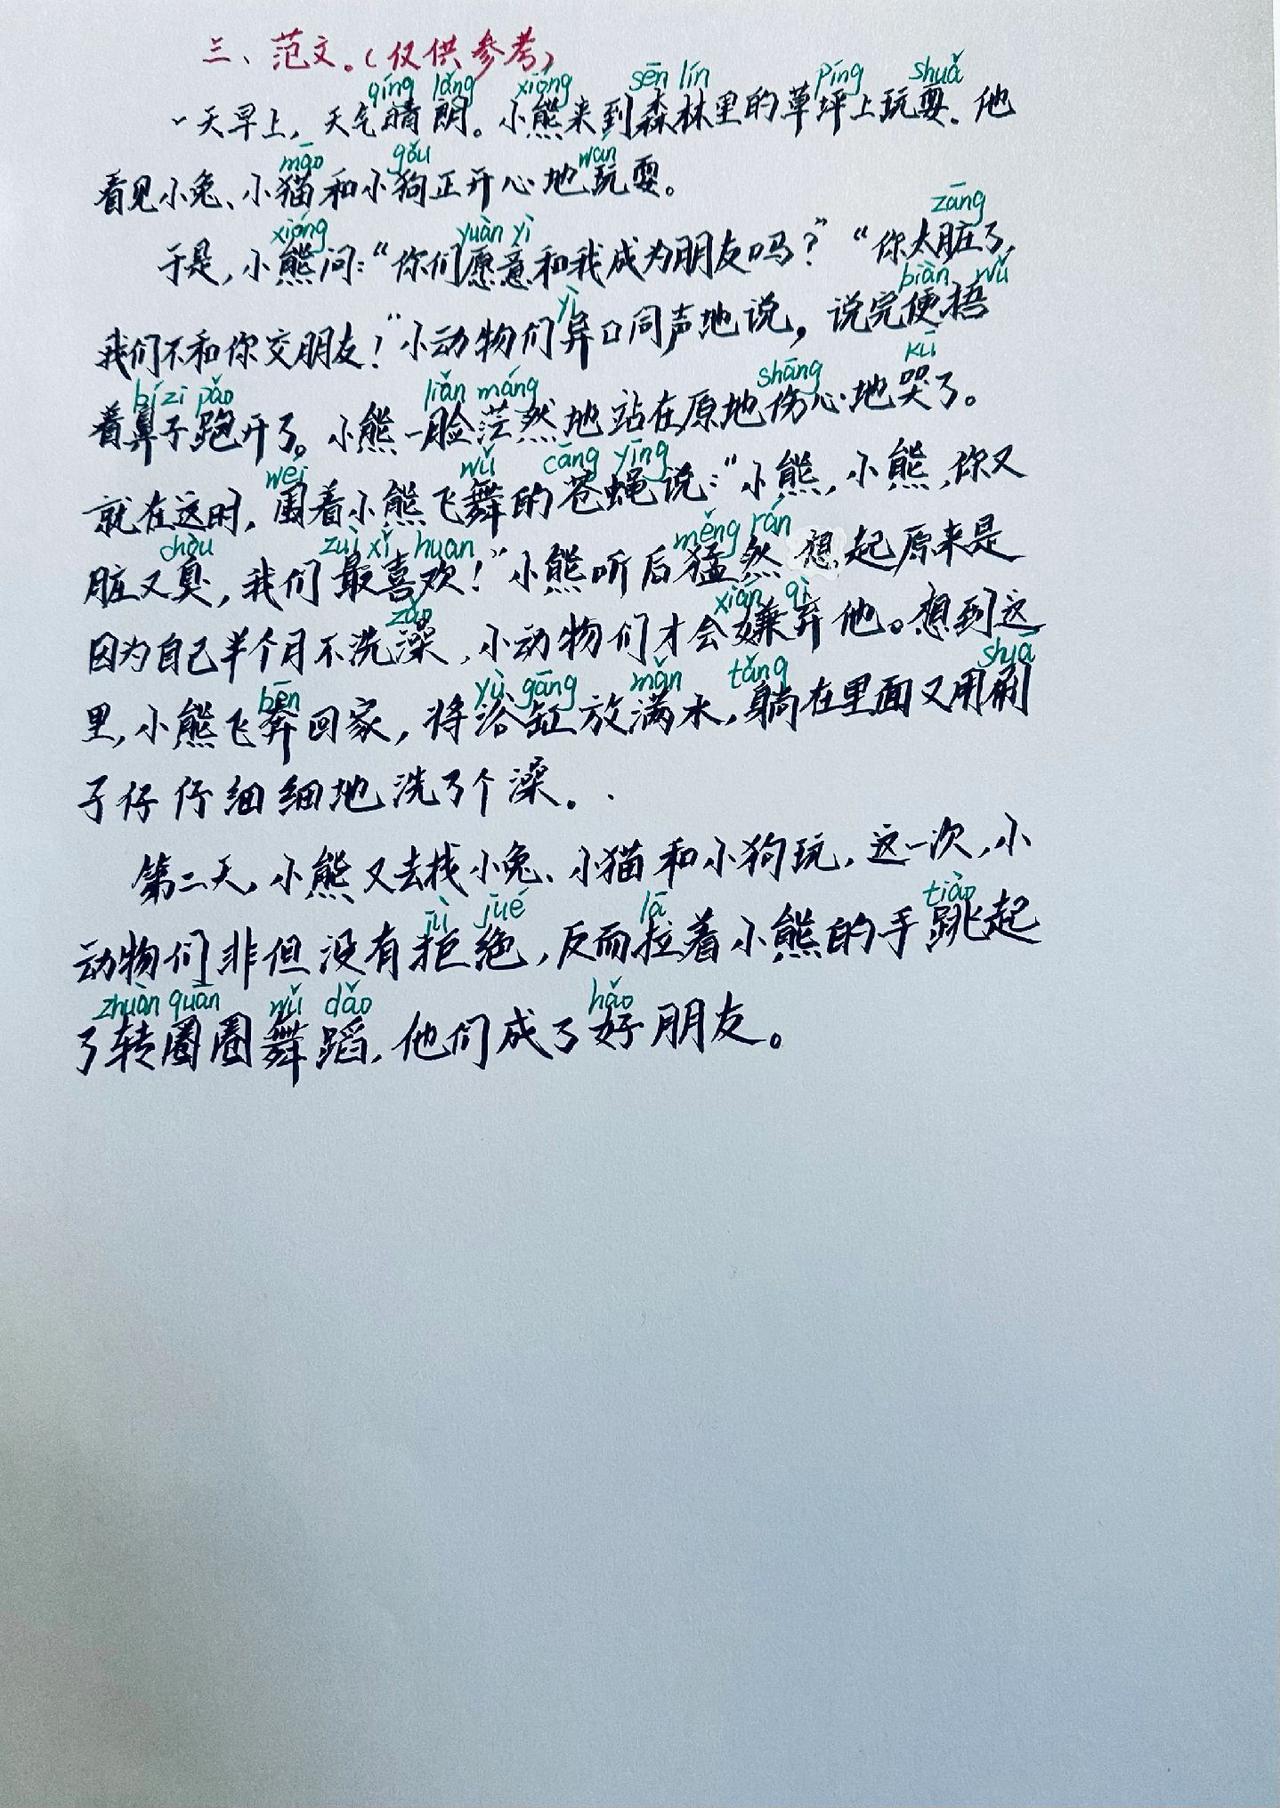 三、范文。(仅供参考)
qíng lǎng xióng sēn lín píng shuǎ
一天早上，天气晴朗。小熊来到森林里的草坪上玩耍。他
māo gǒu wán
看见小兔、小猫和小狗正开心地玩耍。
xióng yuàn yì zāng
于是，小熊问：“你们愿意和我成为朋友吗？”“你太脏了，
yì biàn wǔ
我们不和你交朋友！”小动物们异口同声地说，说完便捂
bí zi pǎo liǎn máng shāng kū
着鼻子跑开了。小熊一脸茫然地站在原地伤心地哭了。
wéi wǔ cāng yīng
就在这时，围着小熊飞舞的苍蝇说：“小熊，小熊，你又
chòu zuì xǐ huan měng rán
脏又臭，我们最喜欢！”小熊听后猛然想起原来是
zǎo xián qì
因为自己半个月不洗澡，小动物们才会嫌弃他。想到这
bēn yù gāng mǎn tǎng shuā
里，小熊飞奔回家，将浴缸放满水，躺在里面又用刷
子仔仔细细地洗了个澡。
第二天，小熊又去找小兔、小猫和小狗玩，这一次，小
jù jué lā tiào
动物们非但没有拒绝，反而拉着小熊的手跳起
zhuàn quān wǔ dǎo hǎo
了转圈圈舞蹈，他们成了好朋友。